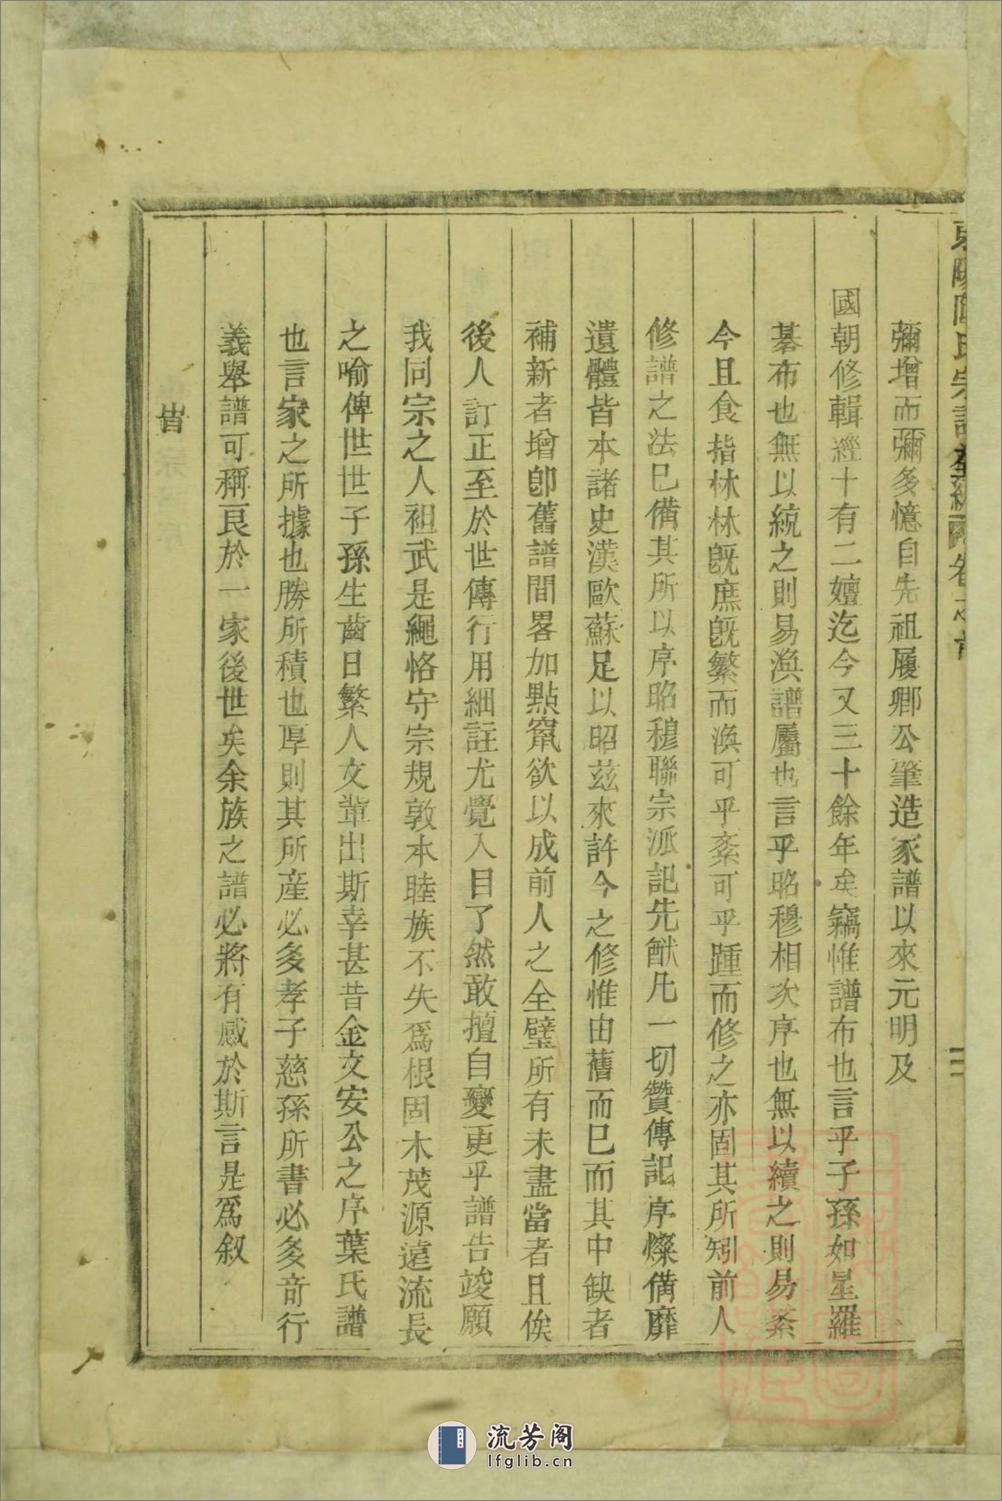 彌增而彌多憶自先祖履卿公肇造家譜以來元明及
國朝修輯經十有二嬗迄今又三十餘年矣竊惟譜布也言乎子孫如星羅
碁布也無以統之則易渙譜屬也言乎昭穆相次序也無以續之則易紊
今且食指林林旣庶旣繁而渙可乎紊可乎踵而修之亦固其所矧前人
修譜之法已備其所以序昭穆聯宗派記先猷凡一切贊傳記序燦備靡
遺體皆本諸史漢歐蘇足以昭茲來許今之修惟由舊而已而其中缺者
補新者增卽舊譜間畧加點竄欲以成前人之全璧所有未盡當者且俟
後人訂正至於世傳行用細註尤覺入目了然敢擅自變更乎譜告竣願
我同宗之人祖武是繩恪守宗規敦本睦族不失爲根固木茂源遠流長
之喻俾世世子孫生齒日繁人文輩出斯幸甚昔金文安公之序葉氏譜
也言家之所據也勝所積也厚則其所產必多孝子慈孫所書必多奇行
義舉譜可稱良於一家後世矣余族之譜必將有感於斯言是爲叙
流芳阁
lfglib.cn